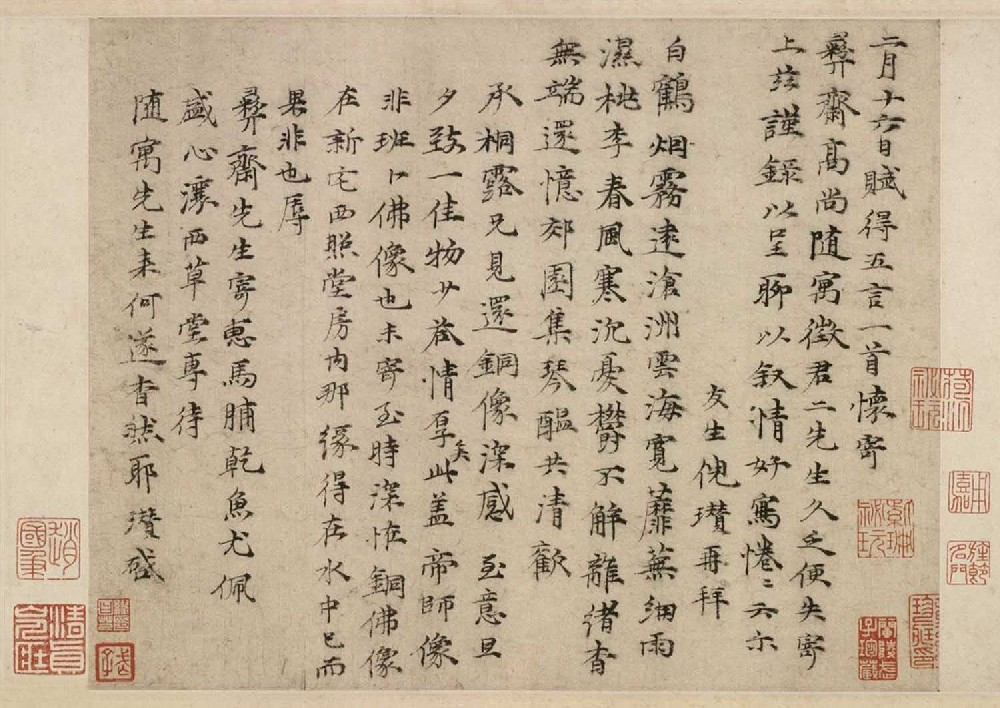 二月十六日賦得五言一首懷寄
彝齋高尚隨寓徵君二先生久乏便失寄
上茲謹錄以呈聊以叙情好寫惓〻云尔
友生倪瓚再拜
白鶴烟霧遠滄洲雲海寬蘼蕪細雨
濕桃李春風寒沉憂欝不解離緒杳
無端還憶郊園集琴醖共清歡
承桐露兄見還銅像深感至意旦
夕致一佳物少答情厚矣此盖帝師像
非班卜佛像也未寄至時深恠銅佛像
在新宅西照堂房内那緣得在水中已而
果非也辱
彝齋先生寄惠馬脯乾魚尤佩
盛心瀼西草堂專待
隨寓先生来何遂杳然耶瓚啟